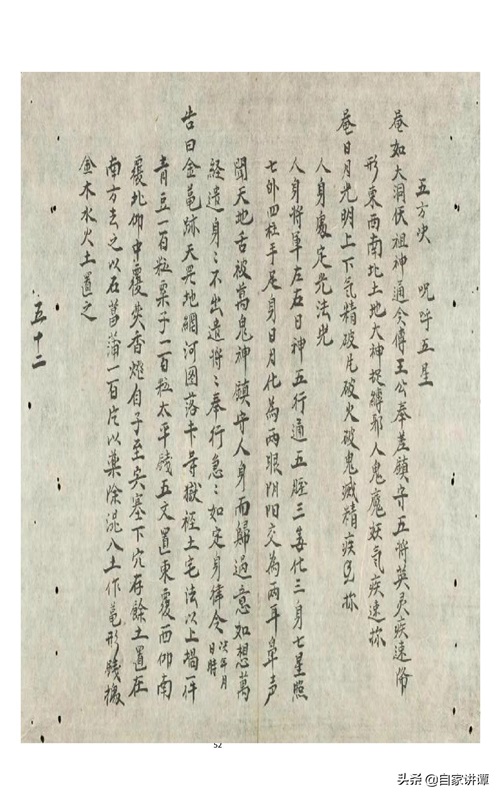 五方决 呪呼五星
奄如大洞伏祖神通令傳王公奉差鎮守五將英灵疾速俏
形東西南北土地大神捉縛邪人鬼魔妖气疾速
奄日月光明上下气精破片破火破鬼滅精疾
人身處定光法
人身將軍左右日神五行通五胫三姜化三身七星照
七外四柱手足身日月化為兩眼阴阳交為兩耳鼻声
聞天地舌被萬鬼神鎮守人身而歸過意如想萬
經遺身〻不出遣將〻奉行急〻如定身律令 以年月日時
告曰金黽跡天罡地網河圖落卡等獄 土宅法以上搨一件
青豆一百粒栗子一百粒太平錢五文置東覆西仰南
覆北仰中覆 香 自子至 塞下穴存餘土置在
南方去之以石菖蒲一百片以藥 混入土作黽形殘
金木水火土置之
五十二
52
头条@自家讲谭